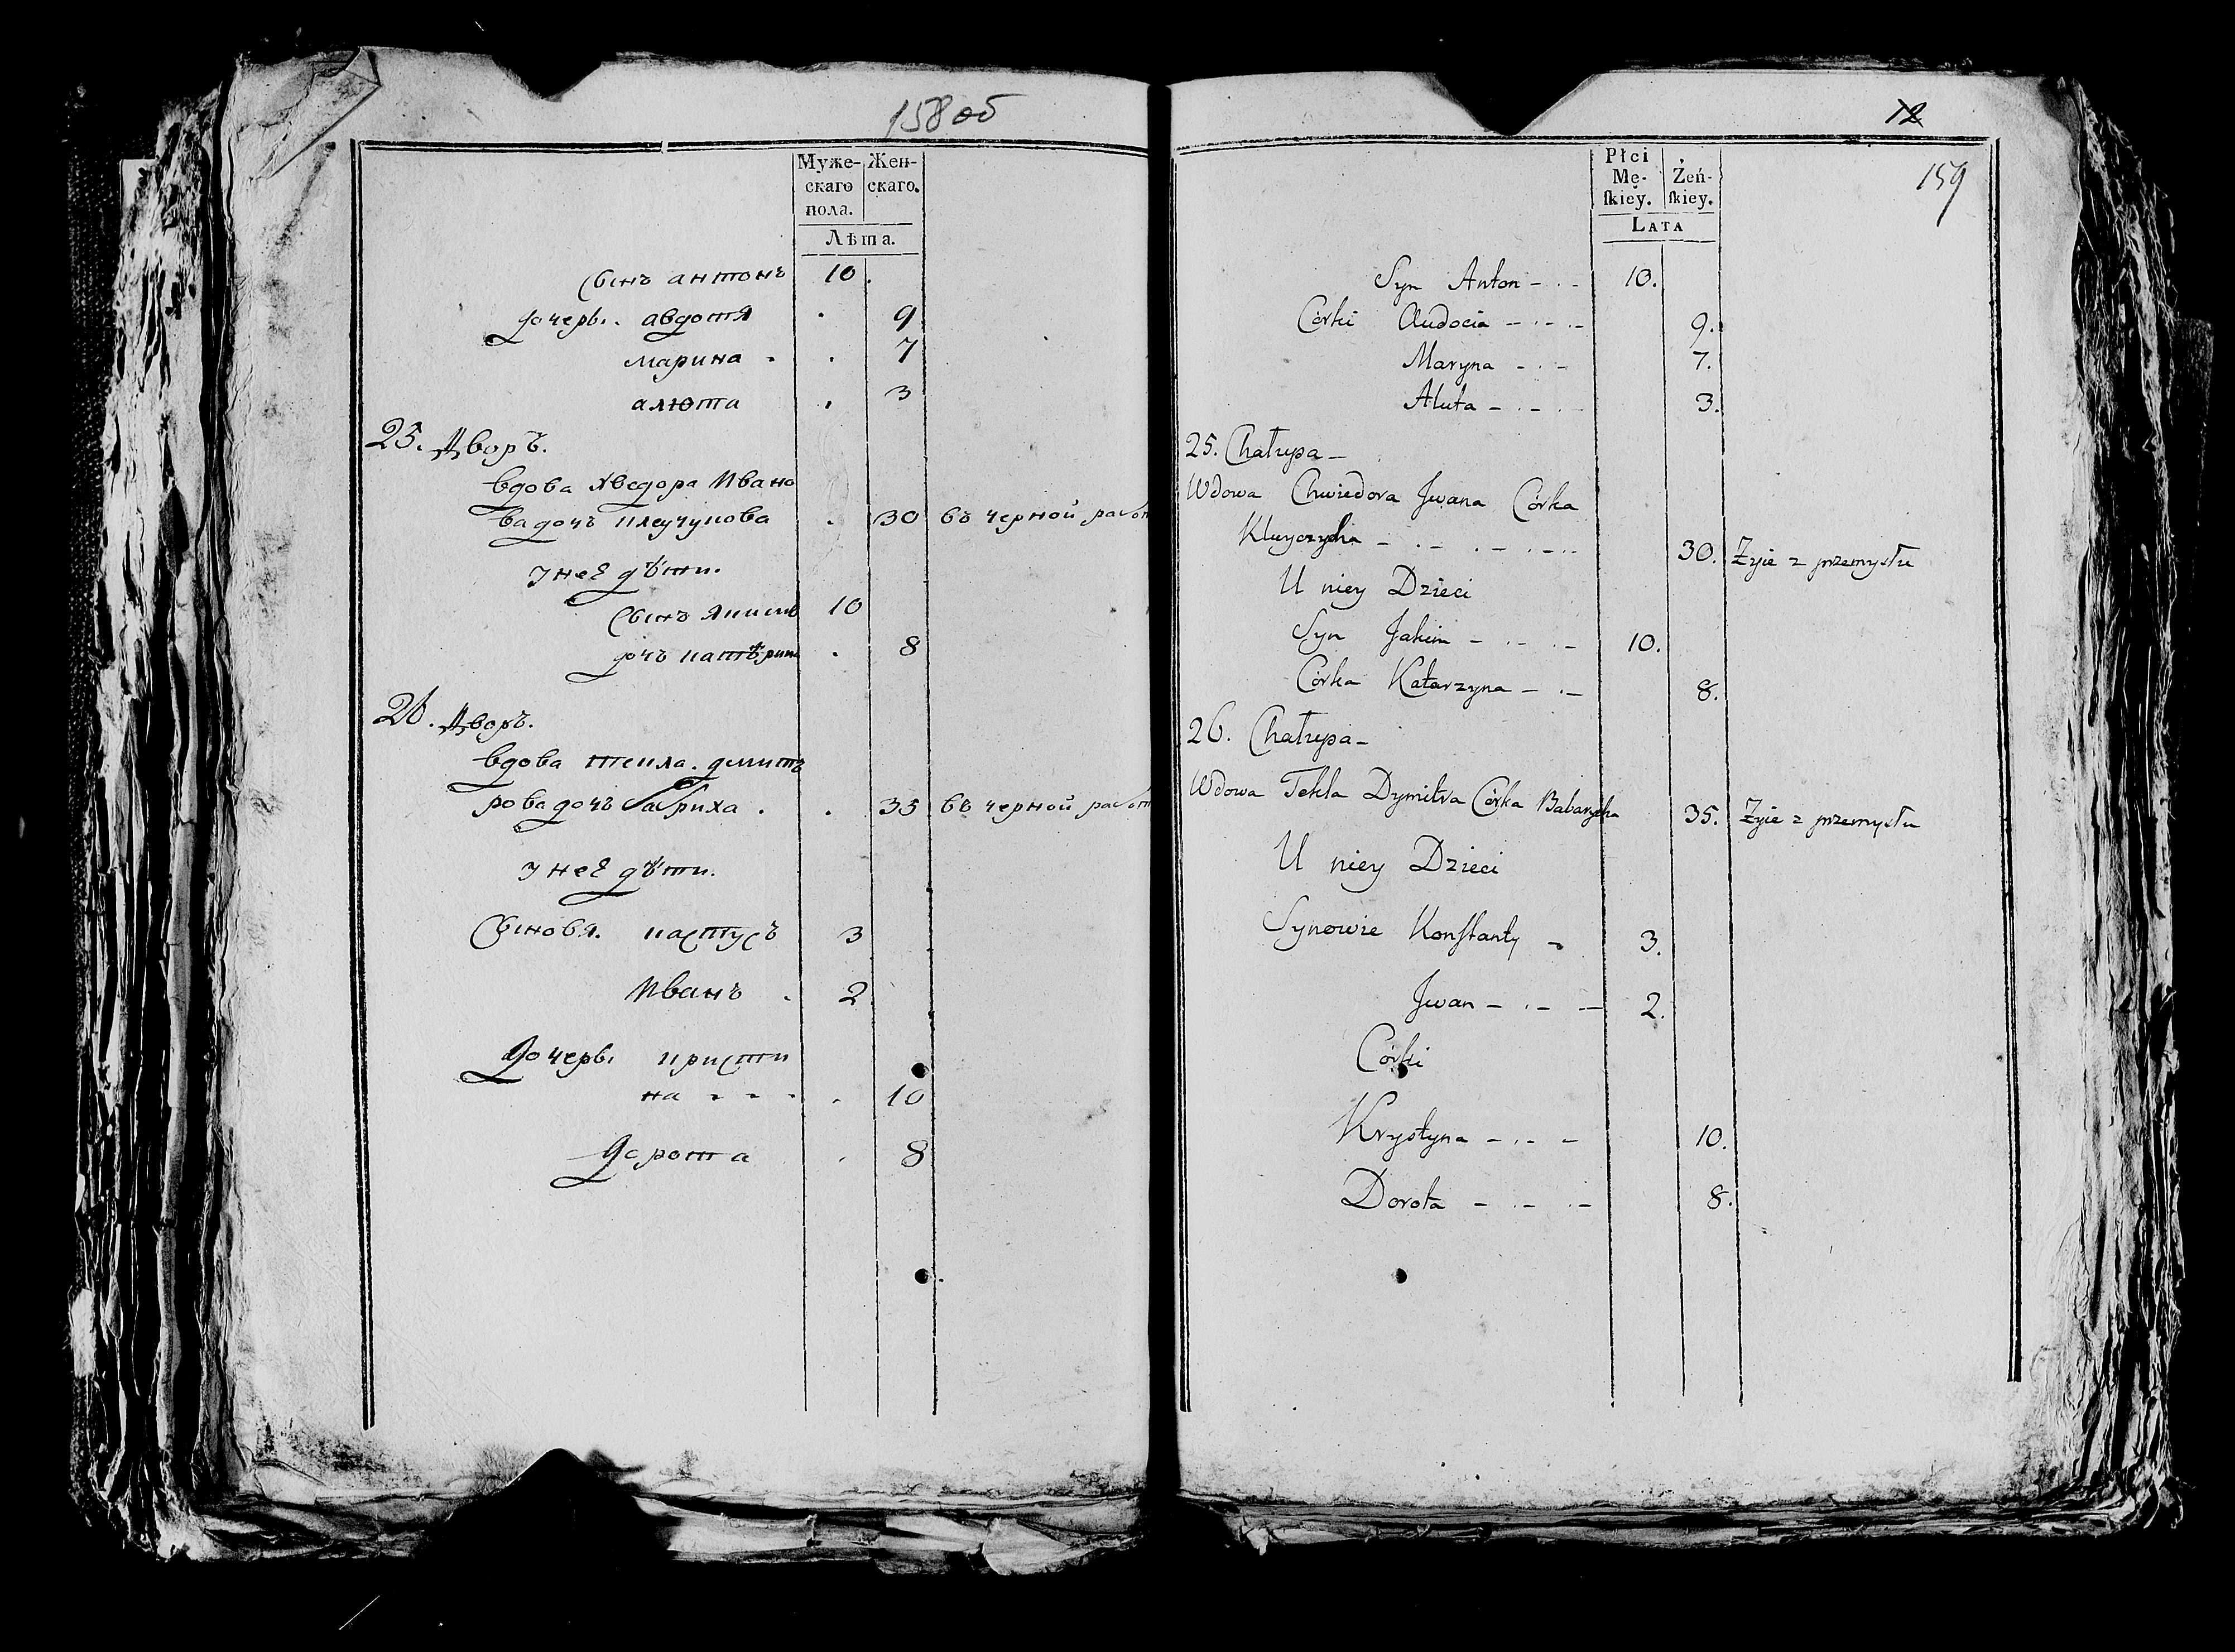 158 об
Муже- Жен-
скаго скаго.
пола.
Лѣта.
сынъ антонъ 10
дочери. авдотя 9
марина 7
алюта 3
25. Дворъ.
вдова хведора Ивано
ва дочъ 30 въ черной работ
у неѣ дѣти.
сынъ якимъ 10
дочъ катѣрина 8
26. Дворъ.
вдова текла. дмит
рова дочъ 35 въ черной работ
у неѣ дѣти.
Сыновя. кастусъ 3
Иванъ 2
Дочери кристи
на 10
Дорота 8
12
159
Płci
Mę- Żeń-
skiey. skiey.
LATA
Syn Anton 10.
Córki Audocia 9.
Maryna 7.
Aluta 3.
25. Chałupa
Wdowa Chwiedora Jwana Córka
30. Żyie z przemysłu
U niey Dzieci
Syn Jakim 10.
Córka Katarzyna 8.
26. Chałupa
Wdowa Tekla Dymitra Córka Babarycha 35. Żyie z przemysłu
U niey Dzieci
Synowie Konstanty 3.
Jwan 2.
Córki
Krystyna 10.
Dorota 8.